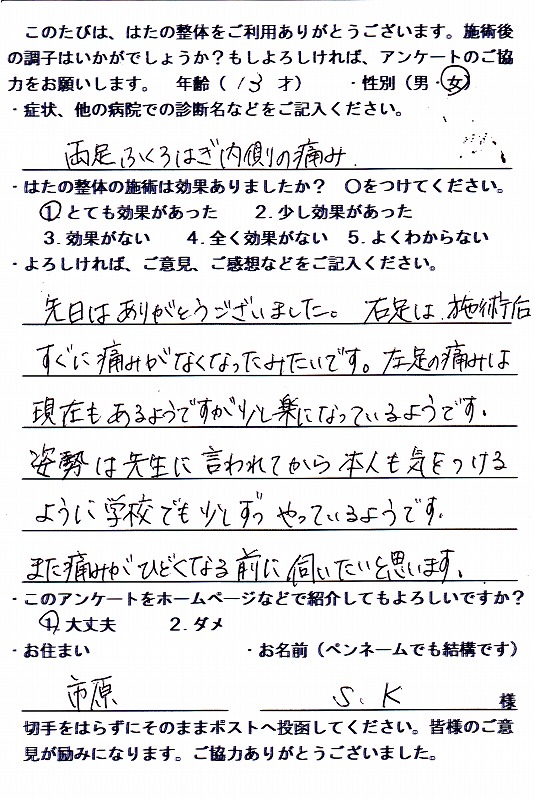 このたびは、はたの整体をご利用ありがとうございます。施術後
の調子はいかがでしょうか？もしよろしければ、アンケートのご協
力をお願いします。 年齢（ 13 才） ・性別（男・女）
・症状、他の病院での診断名などをご記入ください。
両足ふくらはぎ内側の痛み.
・はたの整体の施術は効果ありましたか？ 〇をつけてください。
1. とても効果があった 2. 少し効果があった
3. 効果がない 4. 全く効果がない 5. よくわからない
・よろしければ、ご意見、ご感想などをご記入ください。
先日はありがとうございました。 右足は、施術后
すぐに痛みがなくなったみたいです。左足の痛みは
現在もあるようですが少し楽になっているようです.
姿勢は先生に言われてから本人も気をつける
ように学校でも少しずつやっているようです.
また痛みがひどくなる前に伺いたいと思います.
・このアンケートをホームページなどで紹介してもよろしいですか？
1. 大丈夫 2. ダメ
・お住まい ・お名前（ペンネームでも結構です）
市原 S. K 様
切手をはらずにそのままポストへ投函してください。皆様のご意
見が励みになります。ご協力ありがとうございました。